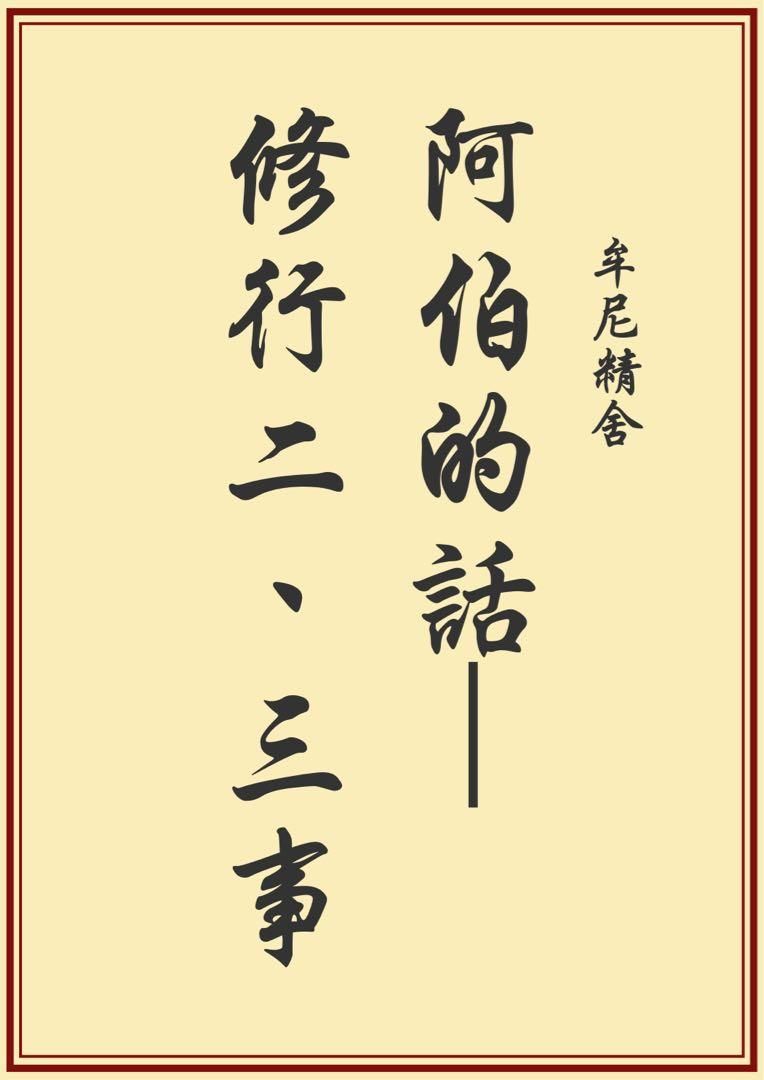 牟尼精舍
阿伯的話—
修行二、三事